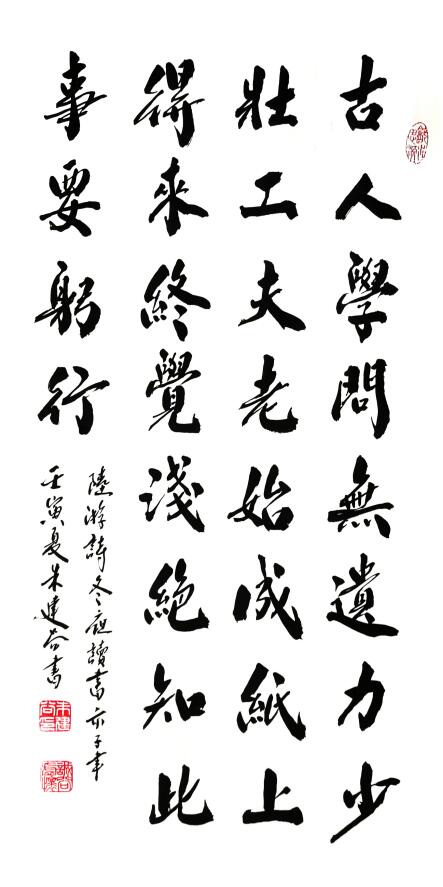 古人學問無遺力少
壯工夫老始成紙上
得來終覺淺絕知此
事要躬行
陸游詩冬夜讀書示子聿
壬寅夏朱建谷書